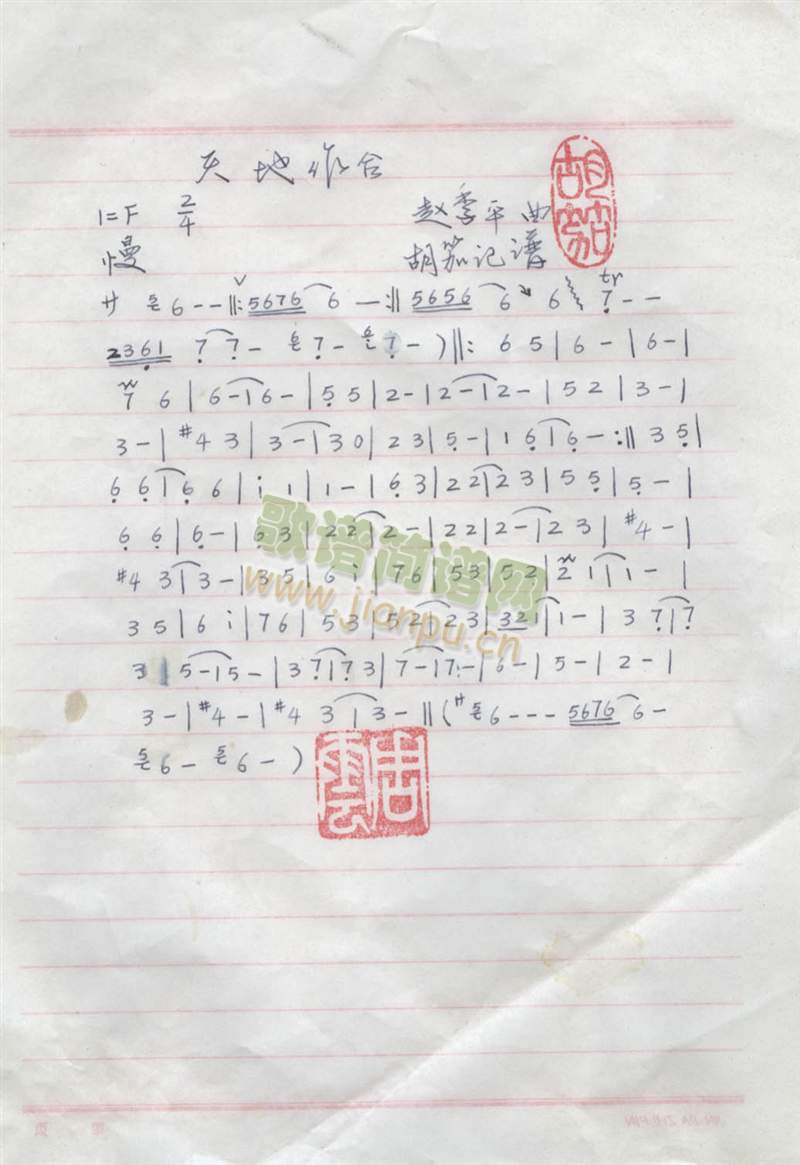 天地作合
胡笳
1=F 2/4 赵季平曲
慢 胡笳记谱
サ 5 6 - - ‖: 5676 6 — :‖ 5656 6 6 tr 7 - -
2361 7 7 - 6 7 - 6i 7 - ) ‖: 6 5 | 6 - | 6 - |
7 6 | 6 - | 6 - | 5 5 | 2 - | 2 - | 2 - | 5 2 | 3 - |
3 - | #4 3 | 3 - | 3 0 | 2 3 | 5 - | 1 6 | 6 - :‖ 3 5 |
6 6 | 6 6 | i 1 | 1 - | 6 3 | 2 2 | 2 3 | 5 5 | 5 - |
6 6 | 6 - | 6 3 | 2 2 | 2 - | 2 2 | 2 - | 2 3 | #4 - |
#4 3 | 3 - | 3 5 | 6 i | 7 6 | 5 3 | 5 2 | 2 1 | 1 - |
3 5 | 6 i | 7 6 | 5 3 | 5 2 | 2 3 | 321 | 1 - | 3 7 | 7
3 | 5 - | 5 - | 3 7 | 7 3 | 7 - | 7 - | 6 - | 5 - | 2 - |
3 - | #4 - | #4 3 | 3 - ‖ ( サ 5 6 - - - 5676 6 -
5 6 - 5 6 - )
歌谱简谱网
www.jianpu.cn